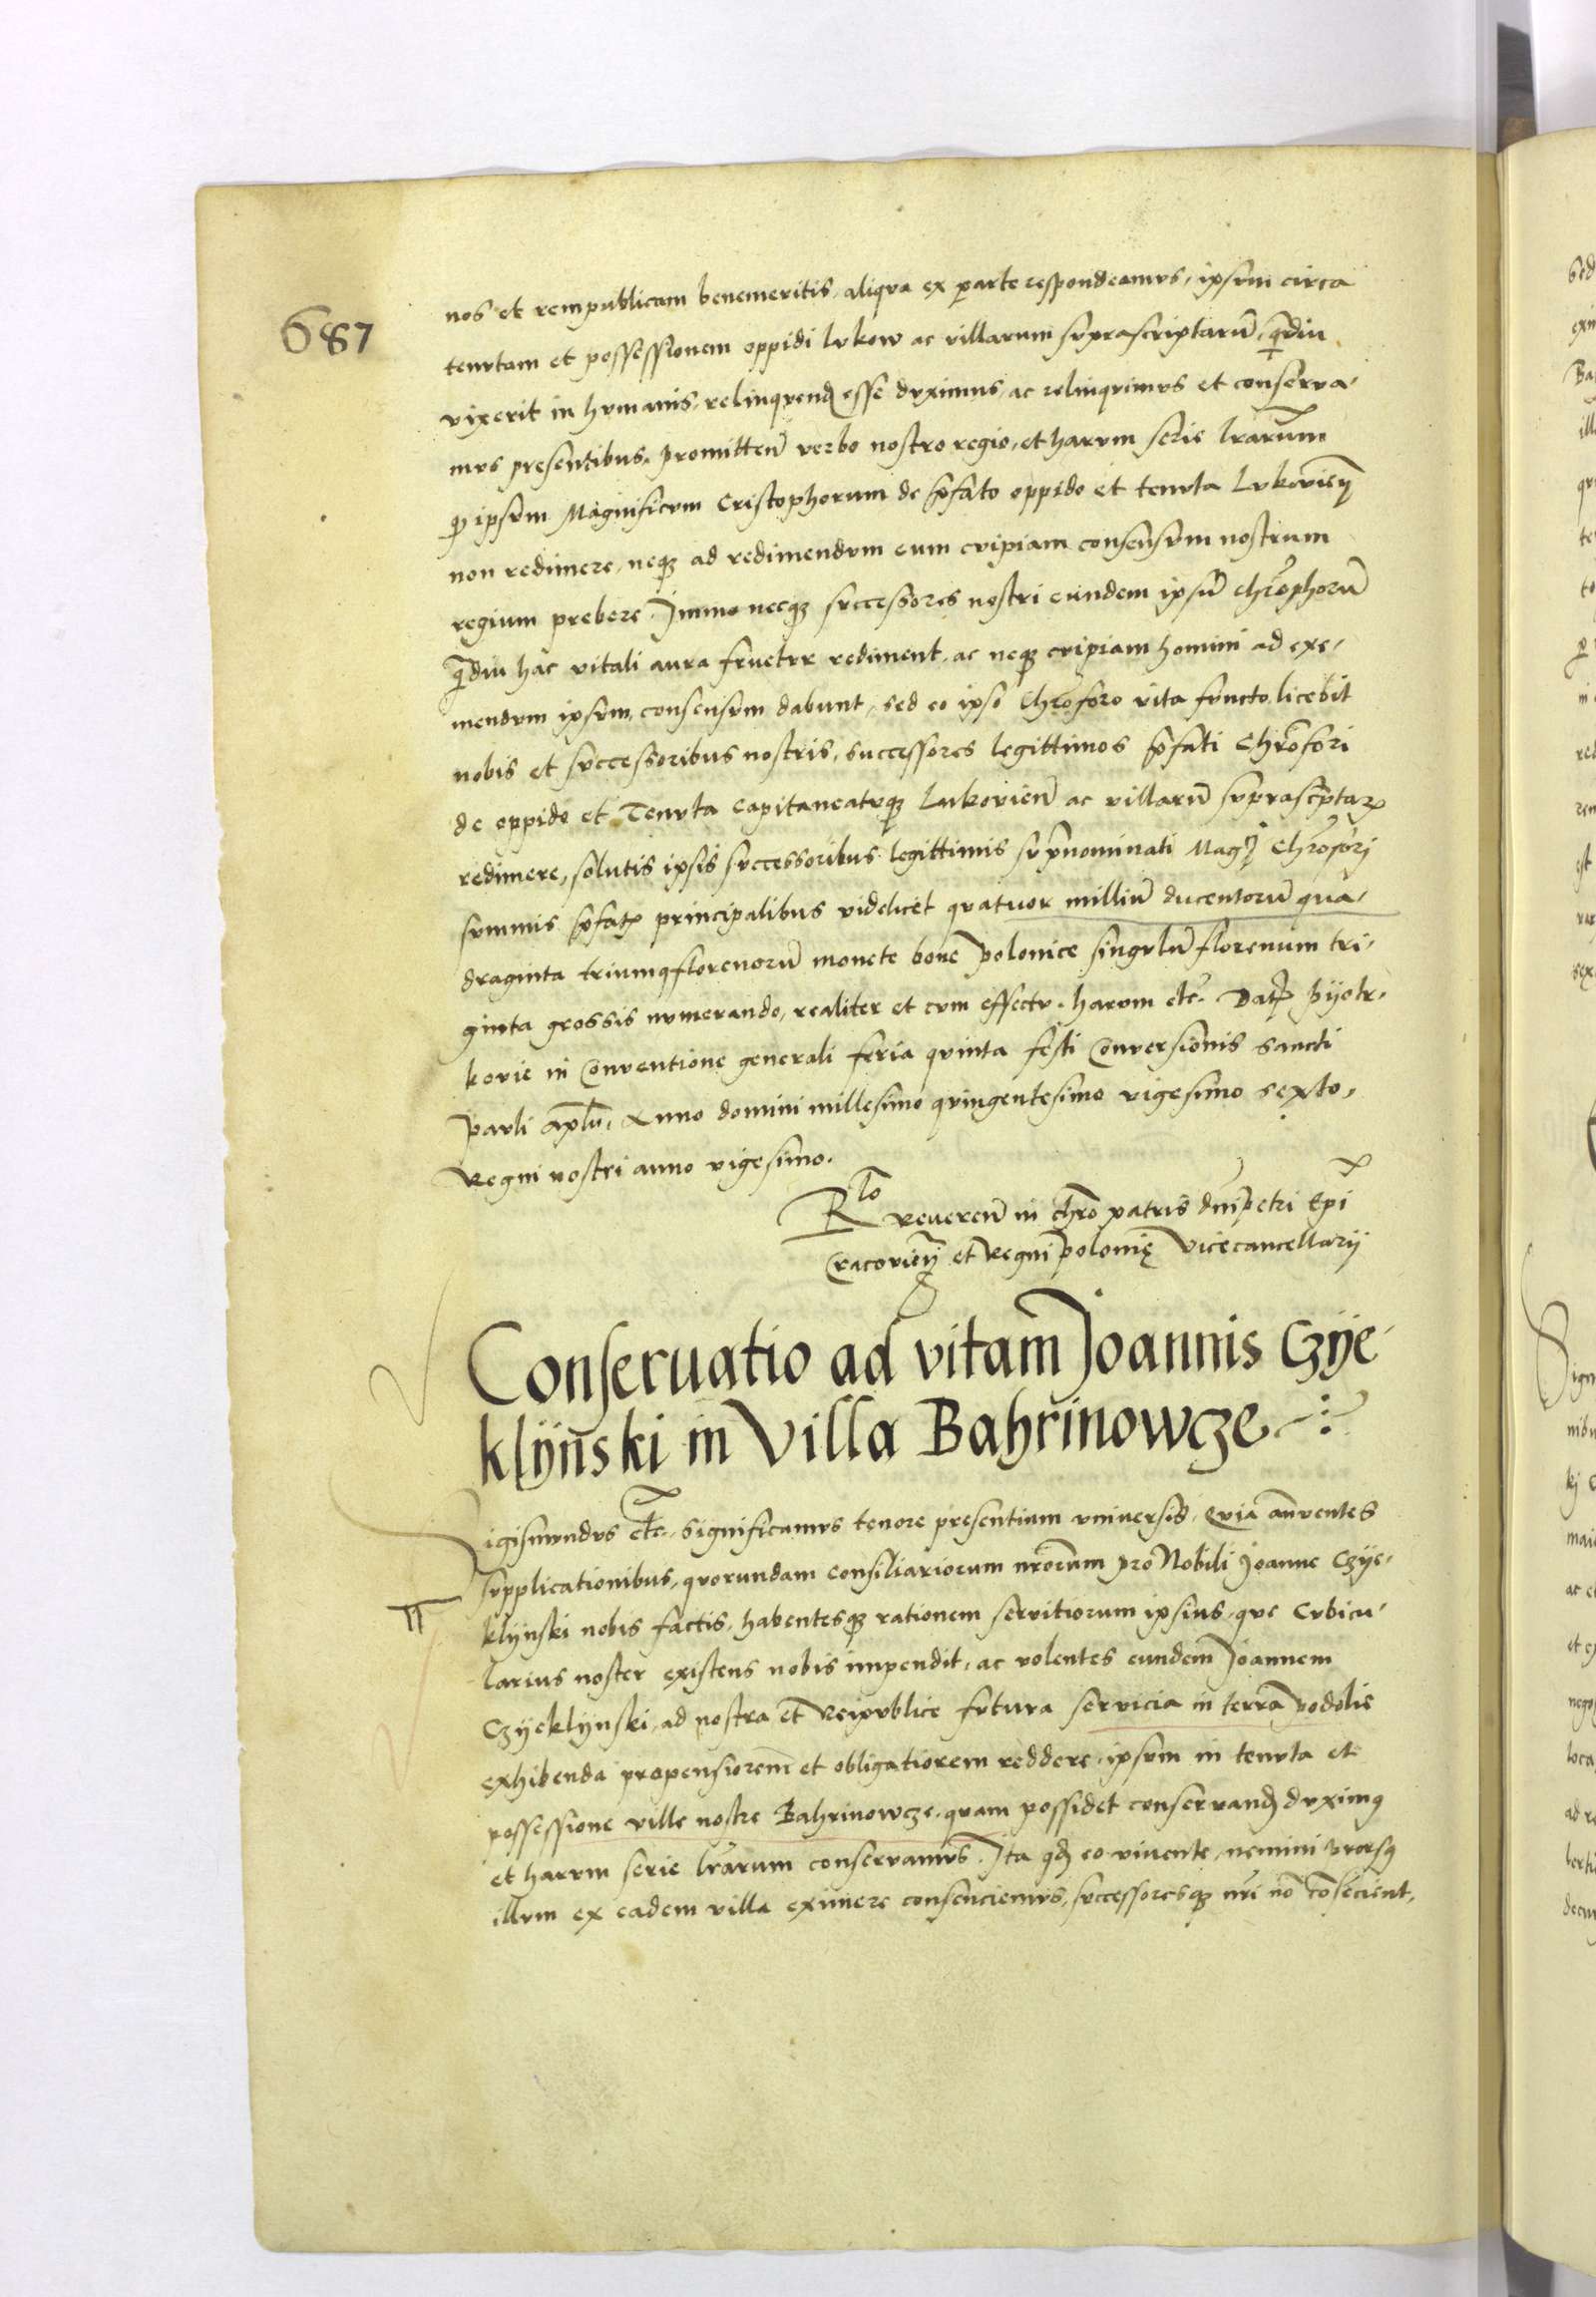 687
nos et rempublicam benemeritis, aliqva ex parte respondeamvs, ipsvm circa
tenvtam et possessionem oppidi Lvkow ac villarum svprascriptarū, qᷓdiu
vixerit in hvmanis, relinqvend esse dvximus, ac relinqvimvs et conserva-
mvs presentibus. promitteñ verbo nostro regio, et harvm serie lrarum̄
qͻ ipsvm Magnificvm Cristophorum de p̄fato oppido et tenvta Lvkovieñ
non redimere, neqꝫ ad redimendvm eum cvipiam consensvm nostrum
regium prebere. Immo necqꝫ svccessores nostri eundem ipsū Chrophorū
qᷓdiu hac vitali avra frvetvr rediment, ac neqꝫ cvipiam homini ad exe-
mendvm ipsvm, consensvm dabunt, sed eo ipso Chroforo vita fvncto, licebit
nobis et svccessoribus nostris, successores legittimos p̄fati Chrofori
de oppido et Tenvta Capitaneatvqꝫ Lukovieñ ac villarū svprascptaꝝ
redimere, solutis ipsis svccessoribus legittimis svpnominati Magci Chrofori
svmmis p̄fatꝭ principalibus videlicet qvatuor milliū ducentorū qua-
draginta triumqꝫ florenorū monete bone polonice singvlū florenum tri-
ginta grossis nvmerando, realiter et cvm effectv. harvm etc. Datꝭ pijotr-
kovie in Conventione generali feria qvinta festi Conversionis sancti
Pavli apli, Anno domini millesimo qvingentesimo vigesimo sexto,
Regni nostri anno vigesimo.
Rlo Revereñ in chro patris dni Petri Epi
Cracovieñ et Regni polonię vicecancellarij
Conseruatio ad vitam Joannis Czije-
klijnski in Villa Bahrinowcze
Sigismvndvs etc. significamvs tenore presentium vniversis, Qvia annventes
svpplicationibus, qvorundam consiliariorum nrorum pro Nobili Joanne Czije-
klijnski nobis factis, habentesqꝫ rationem servitiorum ipsius, qve Cvbicu-
larius noster existens nobis impendit, ac volentes eundem Joannem
Czijeklijnski, ad nostra et Reipvblice fvtura servicia in terra podolie
exhibenda propensiorem et obligatiorem reddere, ipsvm in tenvta et
possessione ville nostre Bahrinowcze, qvam possidet conservand dvximꝰ
et harvm serie lrarum conservamvs. Ita qd eo vivente, nemini prorsꝰ
illvm ex eadem villa eximere consenciemvs, svccessoresqꝫ nri nō cōsecient,